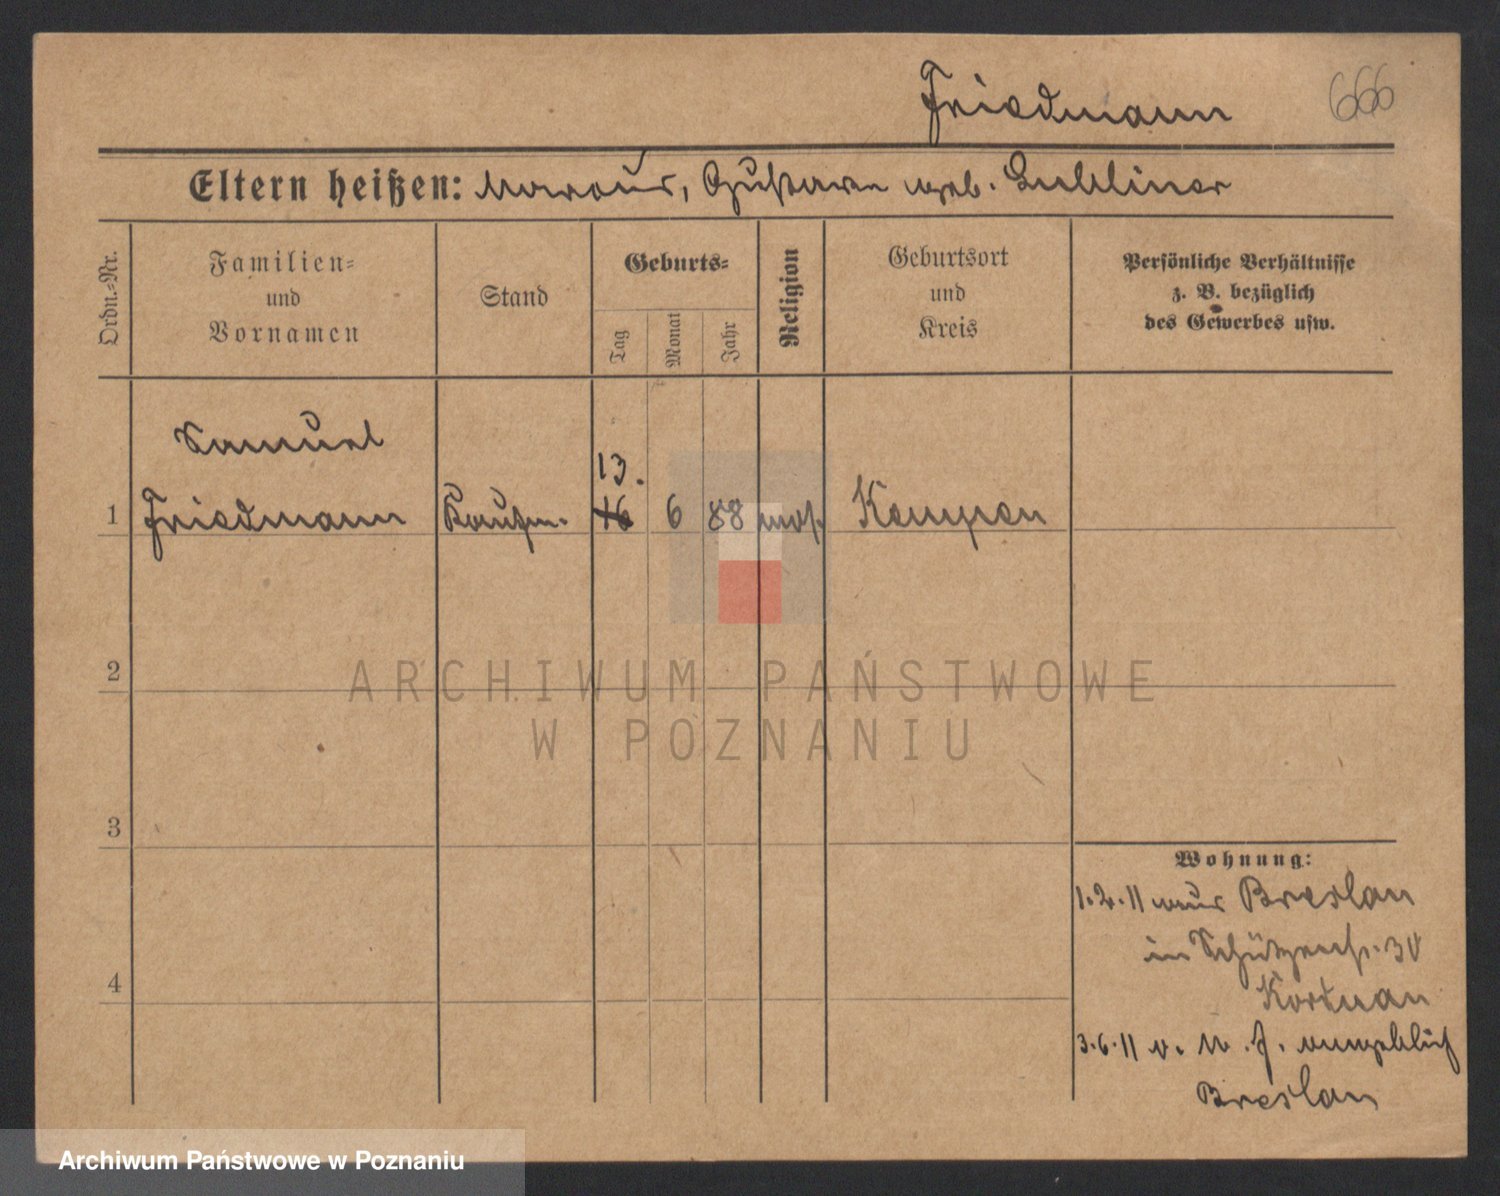 Friedmann
666
Eltern heißen: Marcus, Gustave geb. Lubliner
Ordn.-Nr.
Familien-
und
Vornamen
Stand
Geburts-
Tag
Monat
Jahr
Religion
Geburtsort
und
Kreis
Persönliche Verhältnisse
z. B. bezüglich
des Gewerbes usw.
Samuel
13.
1 Friedmann Kaufm. 16 6 88 mos. Kempen
2
3
4
Wohnung:
1.2.11 aus Breslau
in Schützenstr. 30
3.6.11 angeblich
Breslau
ARCHIWUM PAŃSTWOWE
W POZNANIU
Archiwum Państwowe w Poznaniu